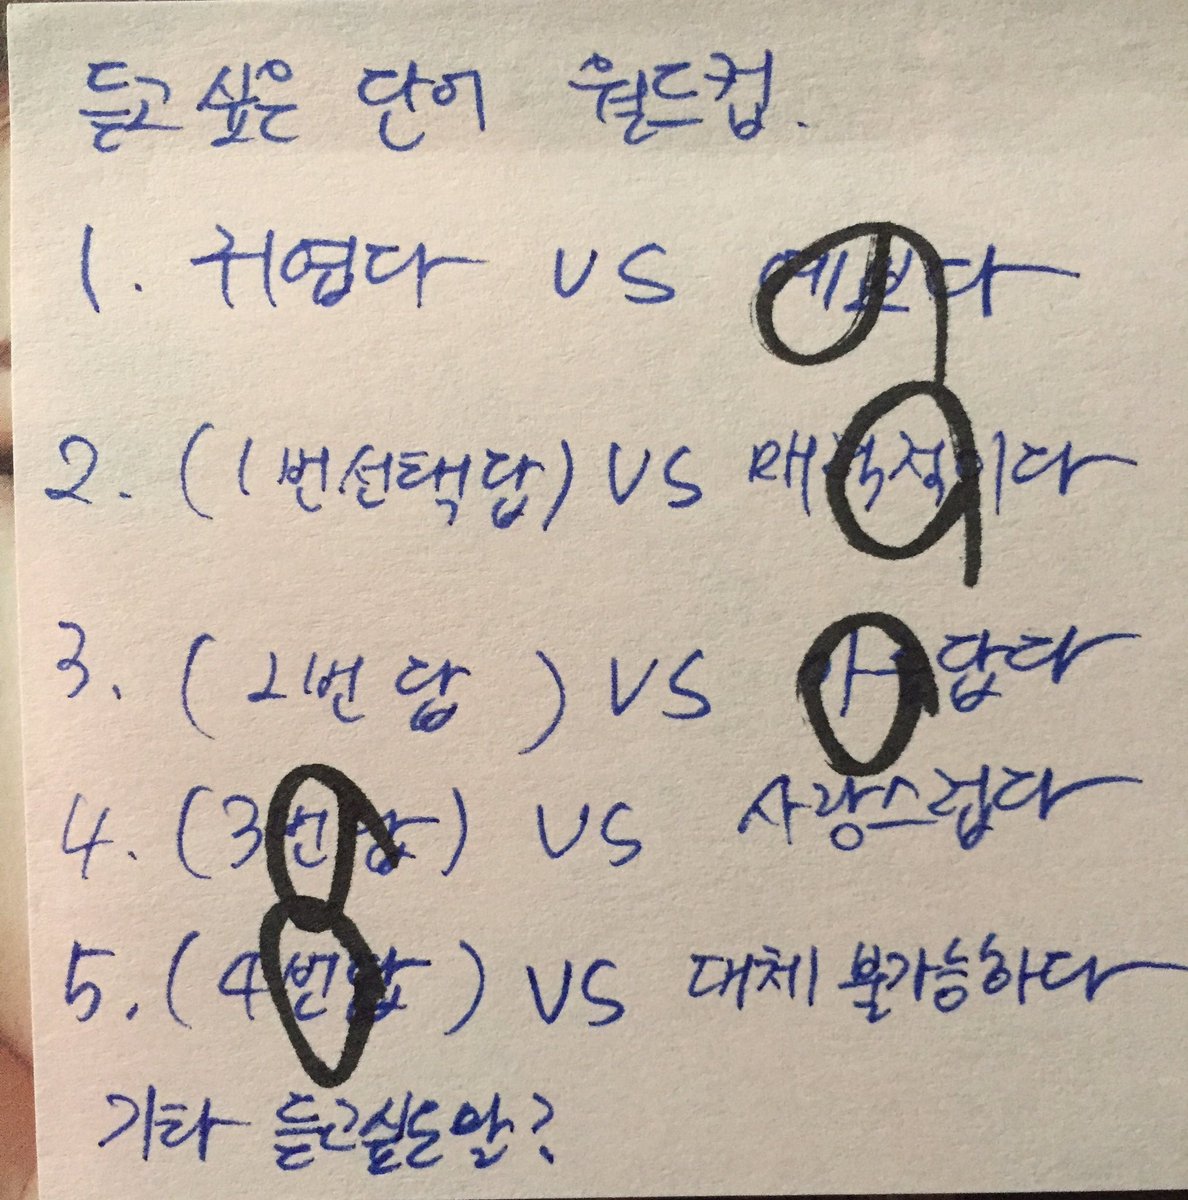 듣고 싶은 단어 월드컵.
1. 귀엽다 VS 예쁘다
2. (1번선택답) VS 매력적이다
3. (2번 답) VS 아름답다
4. (3번답) VS 사랑스럽다
5. (4번답) VS 대체 불가능하다
기타 듣고싶은말?